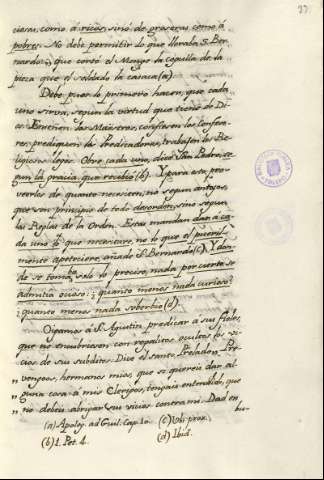 33
ciosas, como á ricas, sinó de groseras como á
pobres. No debe permitir lo que lloraba S. Ber-
nardo, que cortó el Monge la cogulla de la
pieza que el soldado la casaca (a).
Debe pues lo primero hacer, que cada
uno sirva, segun la virtud que tiene de Di-
os. Enseñen las Maestras, confiesen los Confeso-
res, prediquen los Predicadores, trabajen los Re-
ligiosos legos. Obre cada uno, dice San Pedro, se-
gun la gracia, que recibió (b). Y para esta pro-
veerles de quanto necesiten, no segun antojos,
que son principio de todo desorden, sino segun
las Reglas de la Orden. Estas mandan dar á ca-
da uno lo que necesitare, no lo que el pueril-
mente apeteciere, añade S. Bernardo (c). Y don-
de se toma solo lo preciso, nada por cierto se
admitia ocioso: ¡quanto menos nada curioso!
¡quanto menos nada soberbio (d).
Oigamos á S. Agustin predicar á sus fieles,
que no encubriesen con regalitos ocultos los vi-
cios de sus subditos. Dice el santo Prelado: "Pre-
" vengoos, hermanos mios, que si quereis dar al-
" guna cosa á mis Clerigos, tengais entendido, que
" no debeis abrigar sus vicios contra mi. Dad en
bu-
(a) Apolog. ad Guil. Cap. 10.
(b) 1. Pet. 4.
(c) Ubi prox.
(d) Ibid.